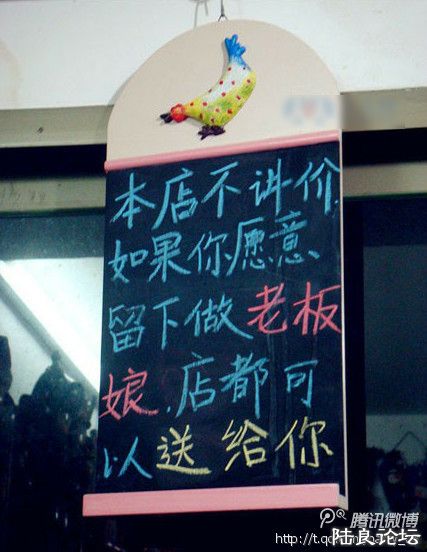 本店不讲价.
如果你愿意、
留下做老板
娘.店都可
以送给你
腾讯微博
陆良论坛